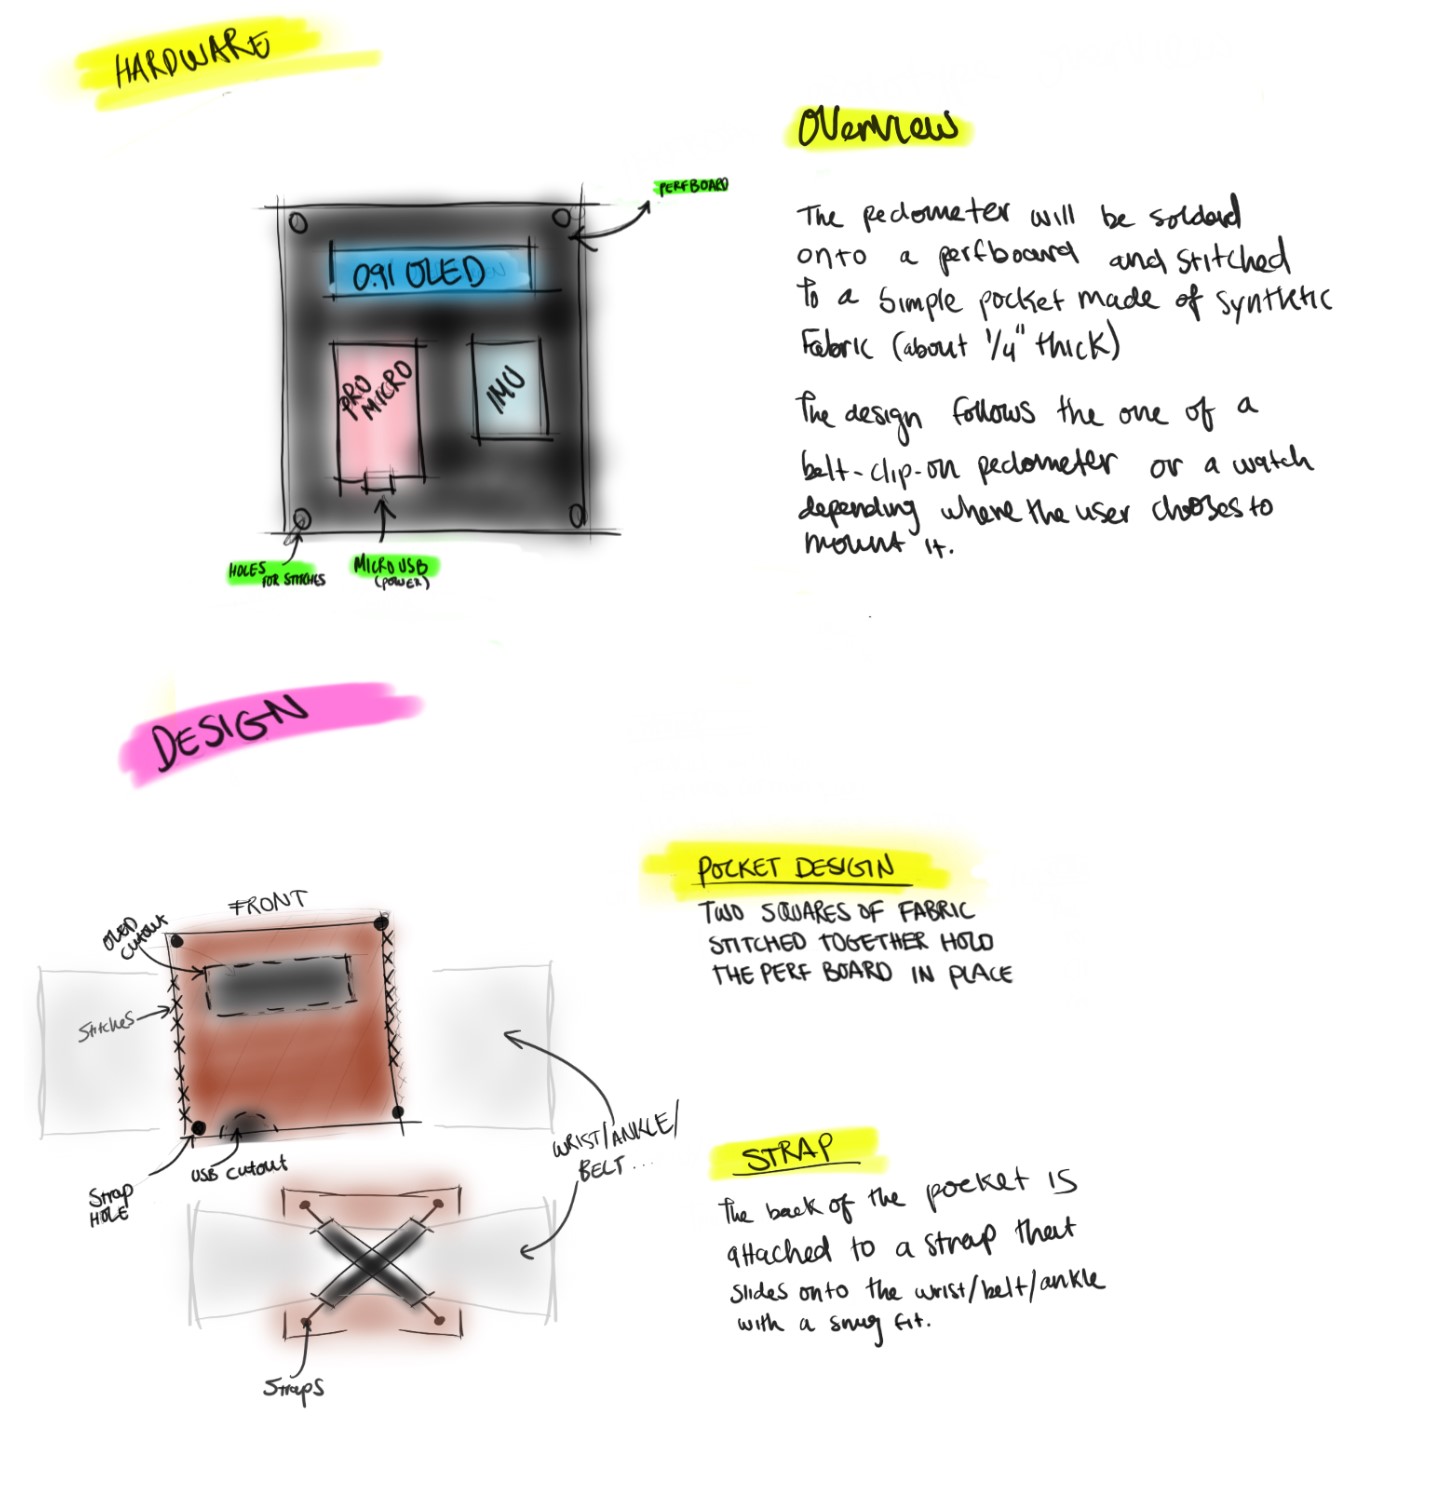 HARDWARE
PERFBOARD
0.91 OLED
PRO
MICRO
IMU
HOLES
FOR STITCHES
MICRO USB
(POWER)
Overview
The pedometer will be soldered
onto a perfboard and stitched
to a simple pocket made of synthetic
Fabric (about 1/4" thick)
The design follows the one of a
belt-clip-on pedometer or a watch
depending where the user chooses to
mount it.
DESIGN
FRONT
OLED
cutout
Stitches
Strap
HOLE
USB cutout
WRIST/ANKLE/
BELT...
Straps
POCKET DESIGN
TWO SQUARES OF FABRIC
STITCHED TOGETHER HOLD
THE PERF BOARD IN PLACE
STRAP
The back of the pocket is
attached to a strap that
slides onto the wrist/belt/ankle
with a snug fit.